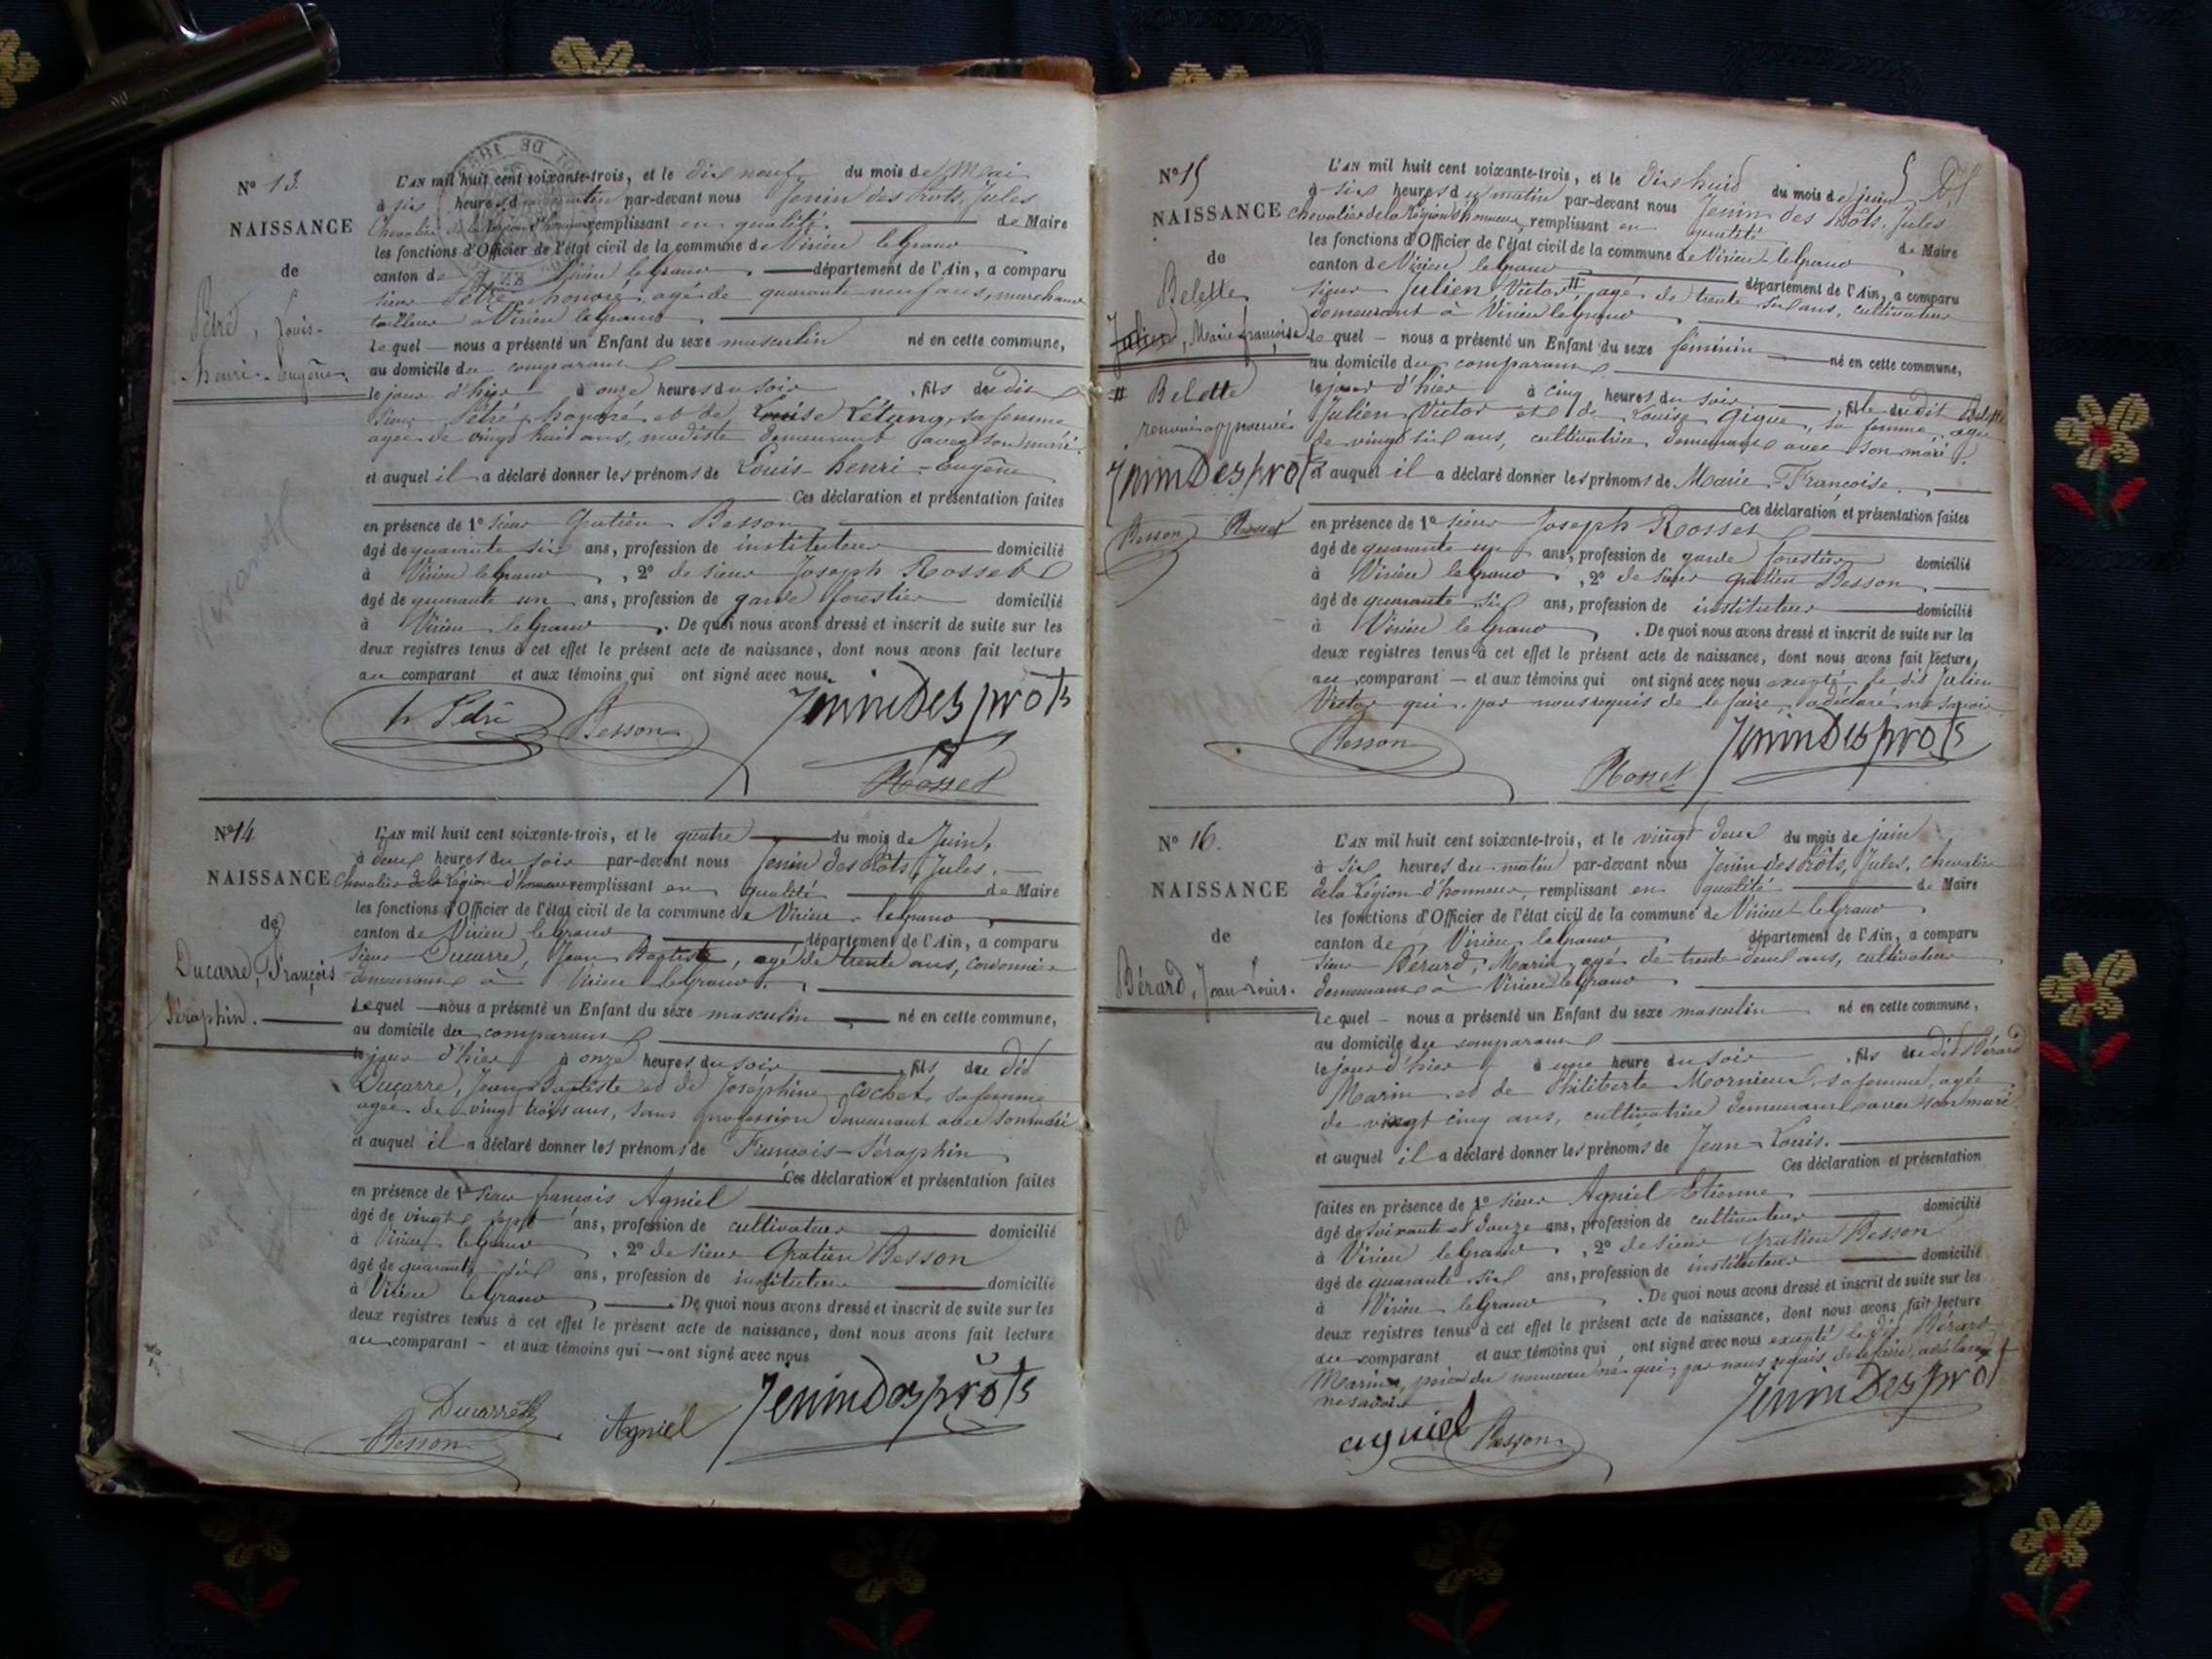 N° 13.
NAISSANCE
de
Pétré, Louis-
henri-Eugène.
L'AN mil huit cent soixante-trois, et le dix neuf du mois de Mai
à six heures du matin par-devant nous Jenin des Prots, Jules
Chevalier de la Légion d'honneur remplissant en qualité de Maire
les fonctions d'Officier de l'état civil de la commune de Virieu le Grand
canton de Virieu le Grand département de l'Ain, a comparu
sieur Pétré honoré, agé de quarante neuf ans, marchand
tailleur à Virieu le Grand
lequel nous a présenté un Enfant du sexe masculin né en cette commune,
au domicile du comparant
le jour d'hier à onze heures du soir, fils du dit
Sieur Pétré, honoré et de Louise Létang, sa femme
agée de vingt huit ans, modiste demeurant avec son mari.
et auquel il a déclaré donner les prénoms de Louis-henri-Eugène
Ces déclaration et présentation faites
en présence de 1° sieur Gratien Besson
âgé de quarante six ans, profession de instituteur domicilié
à Virieu le Grand, 2° de sieur Joseph Rosset
âgé de quarante un ans, profession de garde forestier domicilié
à Virieu le Grand. De quoi nous avons dressé et inscrit de suite sur les
deux registres tenus à cet effet le présent acte de naissance, dont nous avons fait lecture
au comparant et aux témoins qui ont signé avec nous.
h Pétré Besson JeninDesprots
Rosset
N° 14
NAISSANCE
de
Ducarre, François
Séraphin.
L'AN mil huit cent soixante-trois, et le quatre du mois de Juin,
à deux heures du soir par-devant nous Jenin des Prôts, Jules.
Chevalier de la Légion d'honneur remplissant en qualité de Maire
les fonctions d'Officier de l'état civil de la commune de Virieu-le Grand
canton de Virieu le Grand département de l'Ain, a comparu
Sieur Ducarre, Jean Baptiste, agé de trente ans, Cordonnier
demeurant à Virieu le Grand.
lequel nous a présenté un Enfant du sexe masculin né en cette commune,
au domicile du comparant
le jour d'hier à onze heures du soir, fils du dit
Ducarre, Jean Baptiste et de Joséphine Cochet, sa femme
agée de vingt trois ans, sans profession demeurant avec son mari
et auquel il a déclaré donner les prénoms de François-Séraphin
Ces déclaration et présentation faites
en présence de 1° sieur françois Agniel
âgé de vingt sept ans, profession de cultivateur domicilié
à Virieu le Grand, 2° de sieur Gratien Besson
âgé de quarante six ans, profession de instituteur domicilié
à Virieu le Grand. De quoi nous avons dressé et inscrit de suite sur les
deux registres tenus à cet effet le présent acte de naissance, dont nous avons fait lecture
au comparant - et aux témoins qui ont signé avec nous
Ducarre
Besson Agniel JeninDesprôts
N° 15
NAISSANCE
de
Belette
Julien, Marie françoise
# Belette
renvoi approuvé
JeninDesprots
Besson Rosset
L'AN mil huit cent soixante-trois, et le Dix huit du mois de juin
à six heures du matin par-devant nous Jenin des Prôts, Jules
chevalier de la Légion d'honneur, remplissant en qualité de Maire
les fonctions d'Officier de l'état civil de la commune de Virieu-le Grand
canton de Virieu le Grand département de l'Ain, a comparu
sieur Julien Victor #, agé de trente six ans, cultivateur
demeurant à Virieu le Grand
lequel - nous a présenté un Enfant du sexe féminin né en cette commune,
au domicile du comparant
le jour d'hier à cinq heures du soir, fille du dit Belette
Julien Victor et de Louise Gigue, sa femme, agée
de vingt six ans, cultivatrice demeurant avec son mari.
et auquel il a déclaré donner les prénoms de Marie-Françoise.
Ces déclaration et présentation faites
en présence de 1° sieur Joseph Rosset
âgé de quarante un ans, profession de garde forestier domicilié
à Virieu le Grand, 2° de sieur Gratien Besson
âgé de quarante six ans, profession de instituteur domicilié
à Virieu le Grand. De quoi nous avons dressé et inscrit de suite sur les
deux registres tenus à cet effet le présent acte de naissance, dont nous avons fait lecture,
au comparant - et aux témoins qui ont signé avec nous excepté le dit Julien
Victor qui par nous requis de le faire, a déclaré ne savoir
Besson Rosset JeninDesprots
N° 16.
NAISSANCE
de
Bérard, Jean-Louis.
L'AN mil huit cent soixante-trois, et le vingt deux du mois de juin
à six heures du matin par-devant nous Jenin des Prôts, Jules, chevalier
de la Légion d'honneur, remplissant en qualité de Maire
les fonctions d'Officier de l'état civil de la commune de Virieu le Grand
canton de Virieu le Grand département de l'Ain, a comparu
sieur Bérard, Marin, agé de trente deux ans, cultivateur
demeurant à Virieu le Grand
lequel - nous a présenté un Enfant du sexe masculin né en cette commune,
au domicile du comparant
le jour d'hier à une heure du soir, fils du dit Bérard
Marin et de Philiberte Mornieux, sa femme, agée
de vingt cinq ans, cultivatrice demeurant avec son mari.
et auquel il a déclaré donner les prénoms de Jean-Louis.
Ces déclaration et présentation
faites en présence de 1° sieur Agniel Etienne
âgé de soixante et douze ans, profession de cultivateur domicilié
à Virieu le Grand, 2° de sieur Gratien Besson
âgé de quarante six ans, profession de instituteur domicilié
à Virieu le Grand. De quoi nous avons dressé et inscrit de suite sur les
deux registres tenus à cet effet le présent acte de naissance, dont nous avons fait lecture
au comparant et aux témoins qui ont signé avec nous excepté le dit Bérard
Marin, père du nouveau né qui, par nous requis de le faire, a déclaré
ne savoir
agniel Besson JeninDesprot